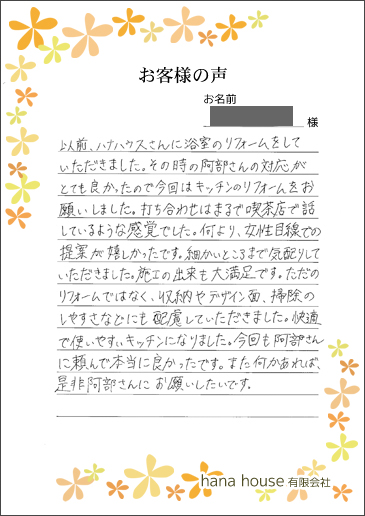 お客様の声
お名前
様
以前、ハナハウスさんに浴室のリフォームをして
いただきました。その時の阿部さんの対応が
とても良かったので今回はキッチンのリフォームをお
願いしました。打ち合わせはまるで喫茶店で話
しているような感覚でした。何より、女性目線での
提案が嬉しかったです。細かいところまで気配りして
いただきました。施工の出来も大満足です。ただの
リフォームではなく、収納やデザイン面、掃除の
しやすさなどにも配慮していただきました。快適
で使いやすいキッチンになりました。今回も阿部さん
に頼んで本当に良かったです。また何かあれば、
是非阿部さんにお願いしたいです。
hana house 有限会社